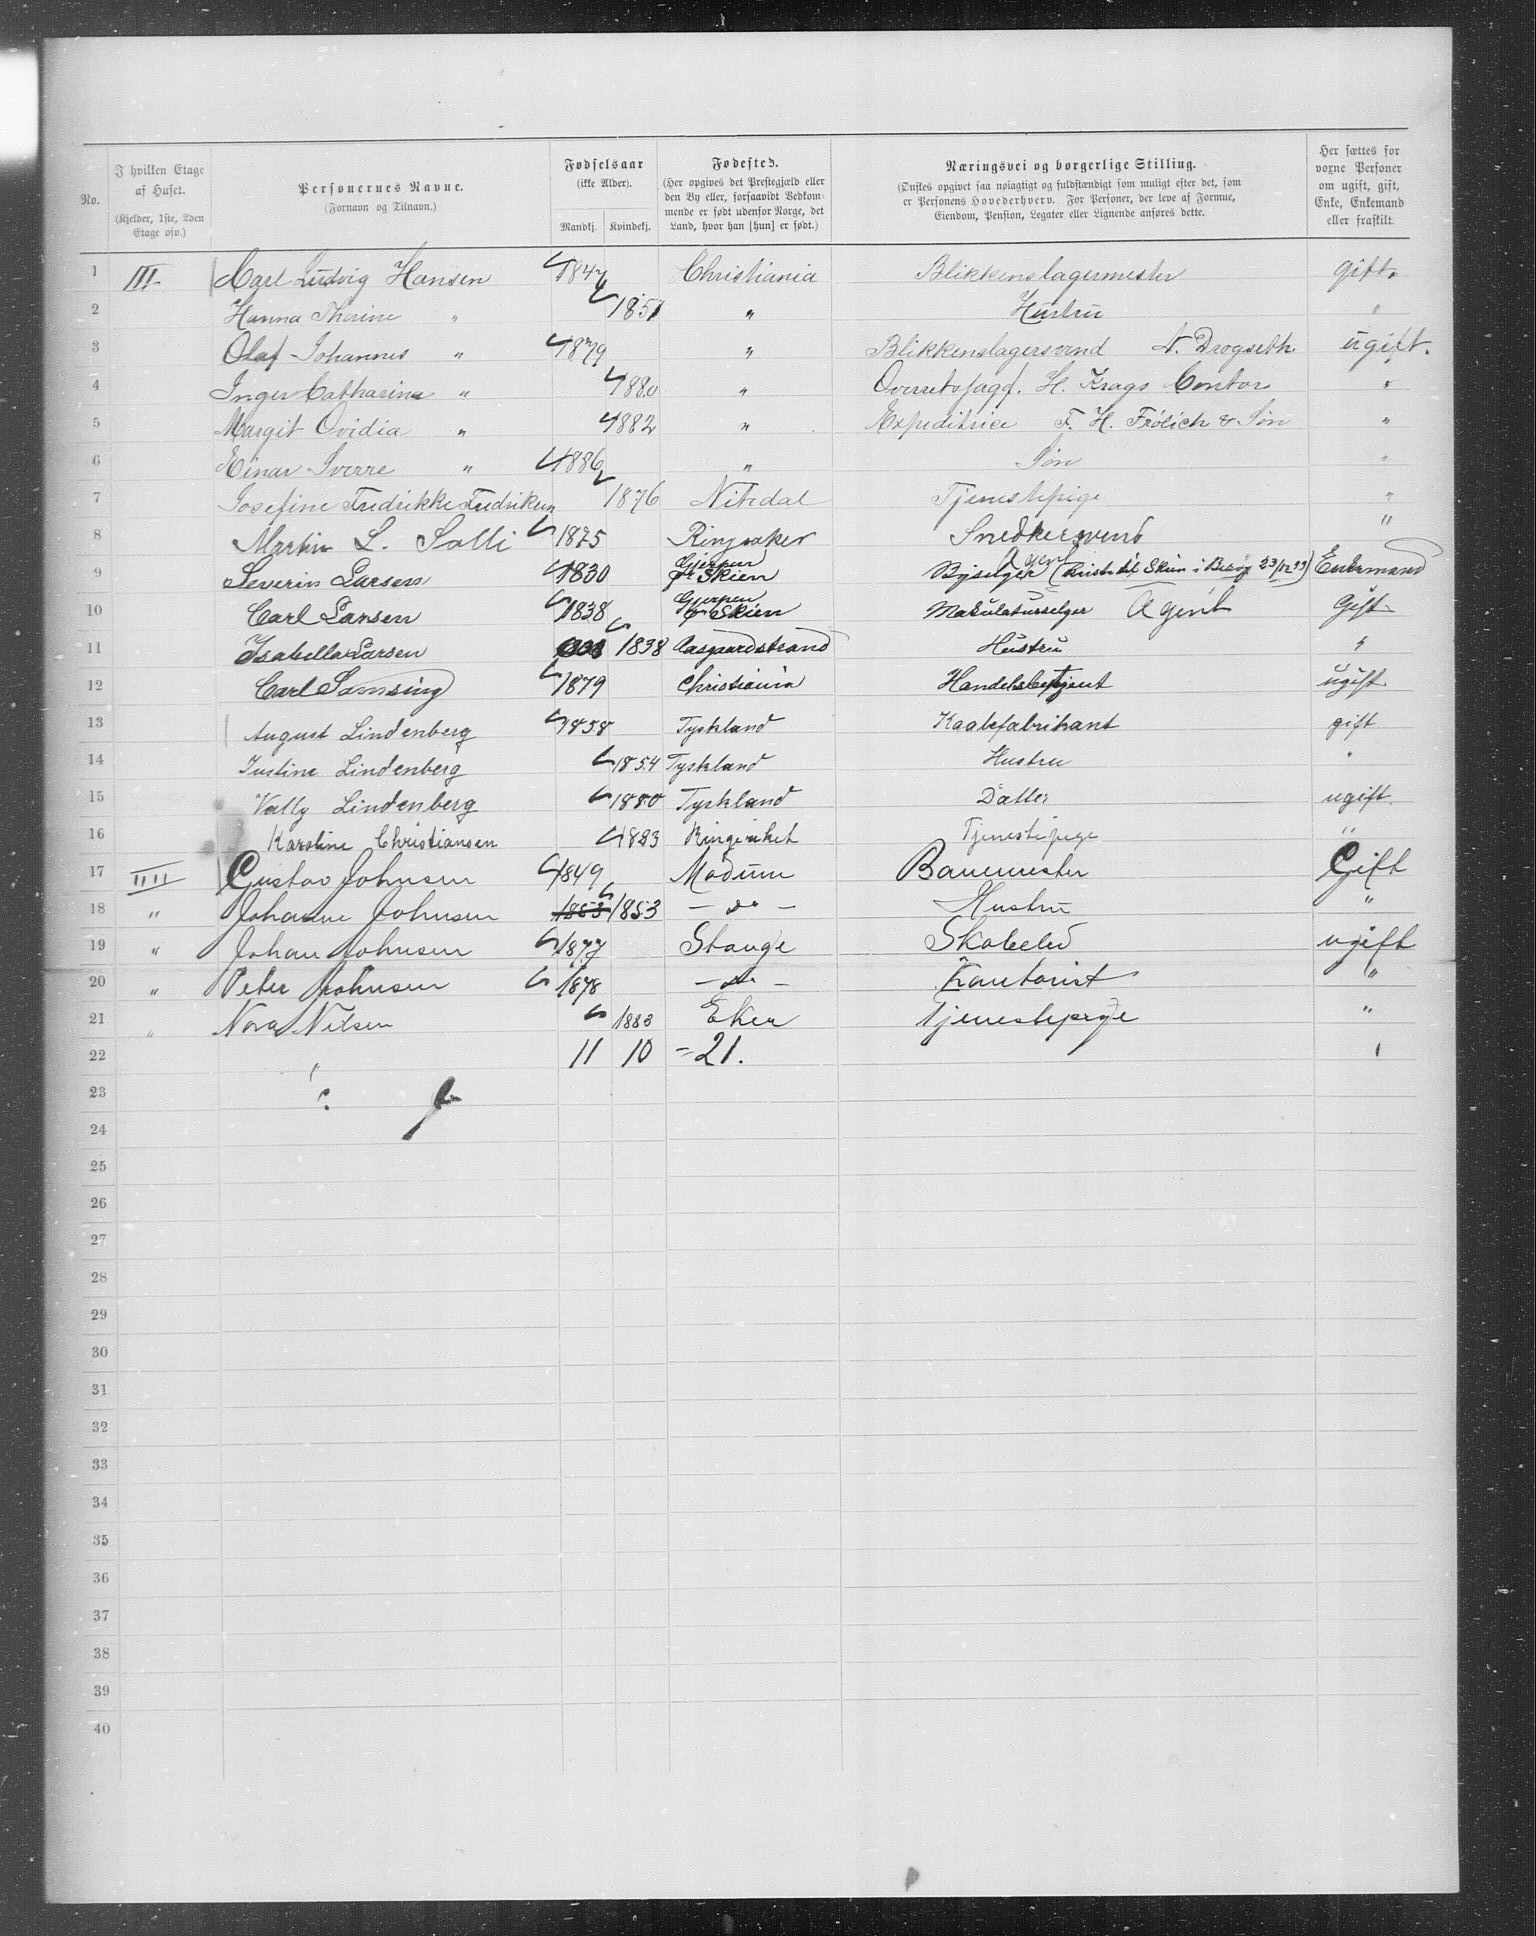 No. | I hvilken Etage af Huset. (Kjelder, 1ste, 2den Etage osv.) | Personernes Navne. (Fornavn og Tilnavn.) | Fødselsaar (ikke Alder). Mandkj. Kvindekj. | Fødested. (Her opgives det Prestegjæld eller den By eller, forsaavidt Vedkommende er født udenfor Norge, det Land, hvor han [hun] er født.) | Næringsvei og borgerlige Stilling. (Ønskes opgivet saa nøiagtigt og fuldstændigt som muligt efter det, som er Personens Hovederhverv. For Personer, der leve af Formue, Eiendom, Pension, Legater eller Lignende anføres dette.) | Her sættes for vorne Personer om ugift, gift, Enke, Enkemand eller fraskilt.
1 III. Carl Ludvig Hansen 1847 Christiania Blikkenslagermester gift.
2 Hanna Thorine " 1851 " Hustru "
3 Olaf Johannes " 1879 " Blikkenslagersvend N. Drogseth ugift.
4 Inger Catharina " 1880 " Overretssagf. H. Krags Contor "
5 Margit Ovidia " 1882 " Expeditrice F. H. Frölich & Søn "
6 Einar Sverre " 1886 " Søn "
7 Josefine Fredrikke Fredriksen 1876 Nitedal Tjenestepige "
8 Martin L. Solli 1875 Ringsaker Snedkersvend "
9 Severin Larsen 1830 Gjerpen Skien Agent (Skien i Besøg 23/12 99) Enkemand
10 Carl Larsen 1838 Gjerpen Skien Makulatursælger Agent Gift
11 Isabella Larsen 1838 Aasgaardstrand Hustru "
12 Carl Samsing 1879 Christiania Handelsbetjent ugift
13 August Lindenberg 1858 Tyskland Kaalefabrikant gift
14 Justine Lindenberg 1854 Tyskland Hustru "
15 Vally Lindenberg 1880 Tyskland Datter ugift.
16 Karoline Christiansen 1883 Ringeriket Tjenestepige "
17 IIII Gustav Johnsen 1849 Modum Banemester Gift
18 " Johanne Johnsen 1853 1853 — do — Hustru "
19 " Johan Johnsen 1877 Stange Skoleelev ugift
20 " Peter Johnsen 1878 — do — Kontorist "
21 " Nora Nilsen 1883 Eker Tjenestepige "
22 11 10 = 21.
23
24
25
26
27
28
29
30
31
32
33
34
35
36
37
38
39
40